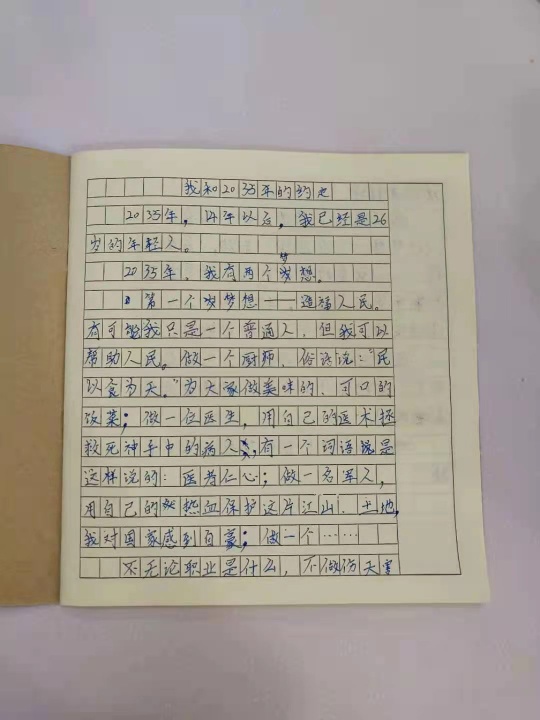 我和2035年的约定
2035年，14年以后，我已经是26
岁的年轻人。
2035年，我有两个梦想。
第一个梦想——造福人民。
有可能我只是一个普通人，但我可以
帮助人民。做一个厨师，俗话说："民
以食为天。"为大家做美味的、可口的
饭菜；做一位医生，用自己的医术拯
救死神手中的病人，有一个词语就是
这样说的：医者仁心；做一名军人，
用自己的热血保护这片江山、土地，
我对国家感到自豪；做一个……
不无论职业是什么，不做伤天害